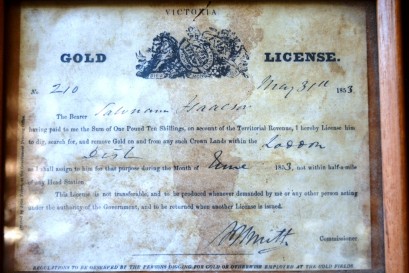 VICTORIA
GOLD LICENSE.
No. 210 May 31st 1853
The Bearer Isaacson
having paid to me the Sum of One Pound Ten Shillings, on account of the Territorial Revenue, I hereby License him
to dig, search for, and remove Gold on and from any such Crown Lands within the Loddon
as I shall assign to him for that purpose during the Month of June 1853, not within half-a-mile
of any Head Station.
This License is not transferable, and to be produced whenever demanded by me or any other person acting
under the authority of the Government, and to be returned when another License is issued.
Commissioner.
REGULATIONS TO BE OBSERVED BY THE PERSONS DIGGING FOR GOLD OR OTHERWISE EMPLOYED AT THE GOLD FIELDS.